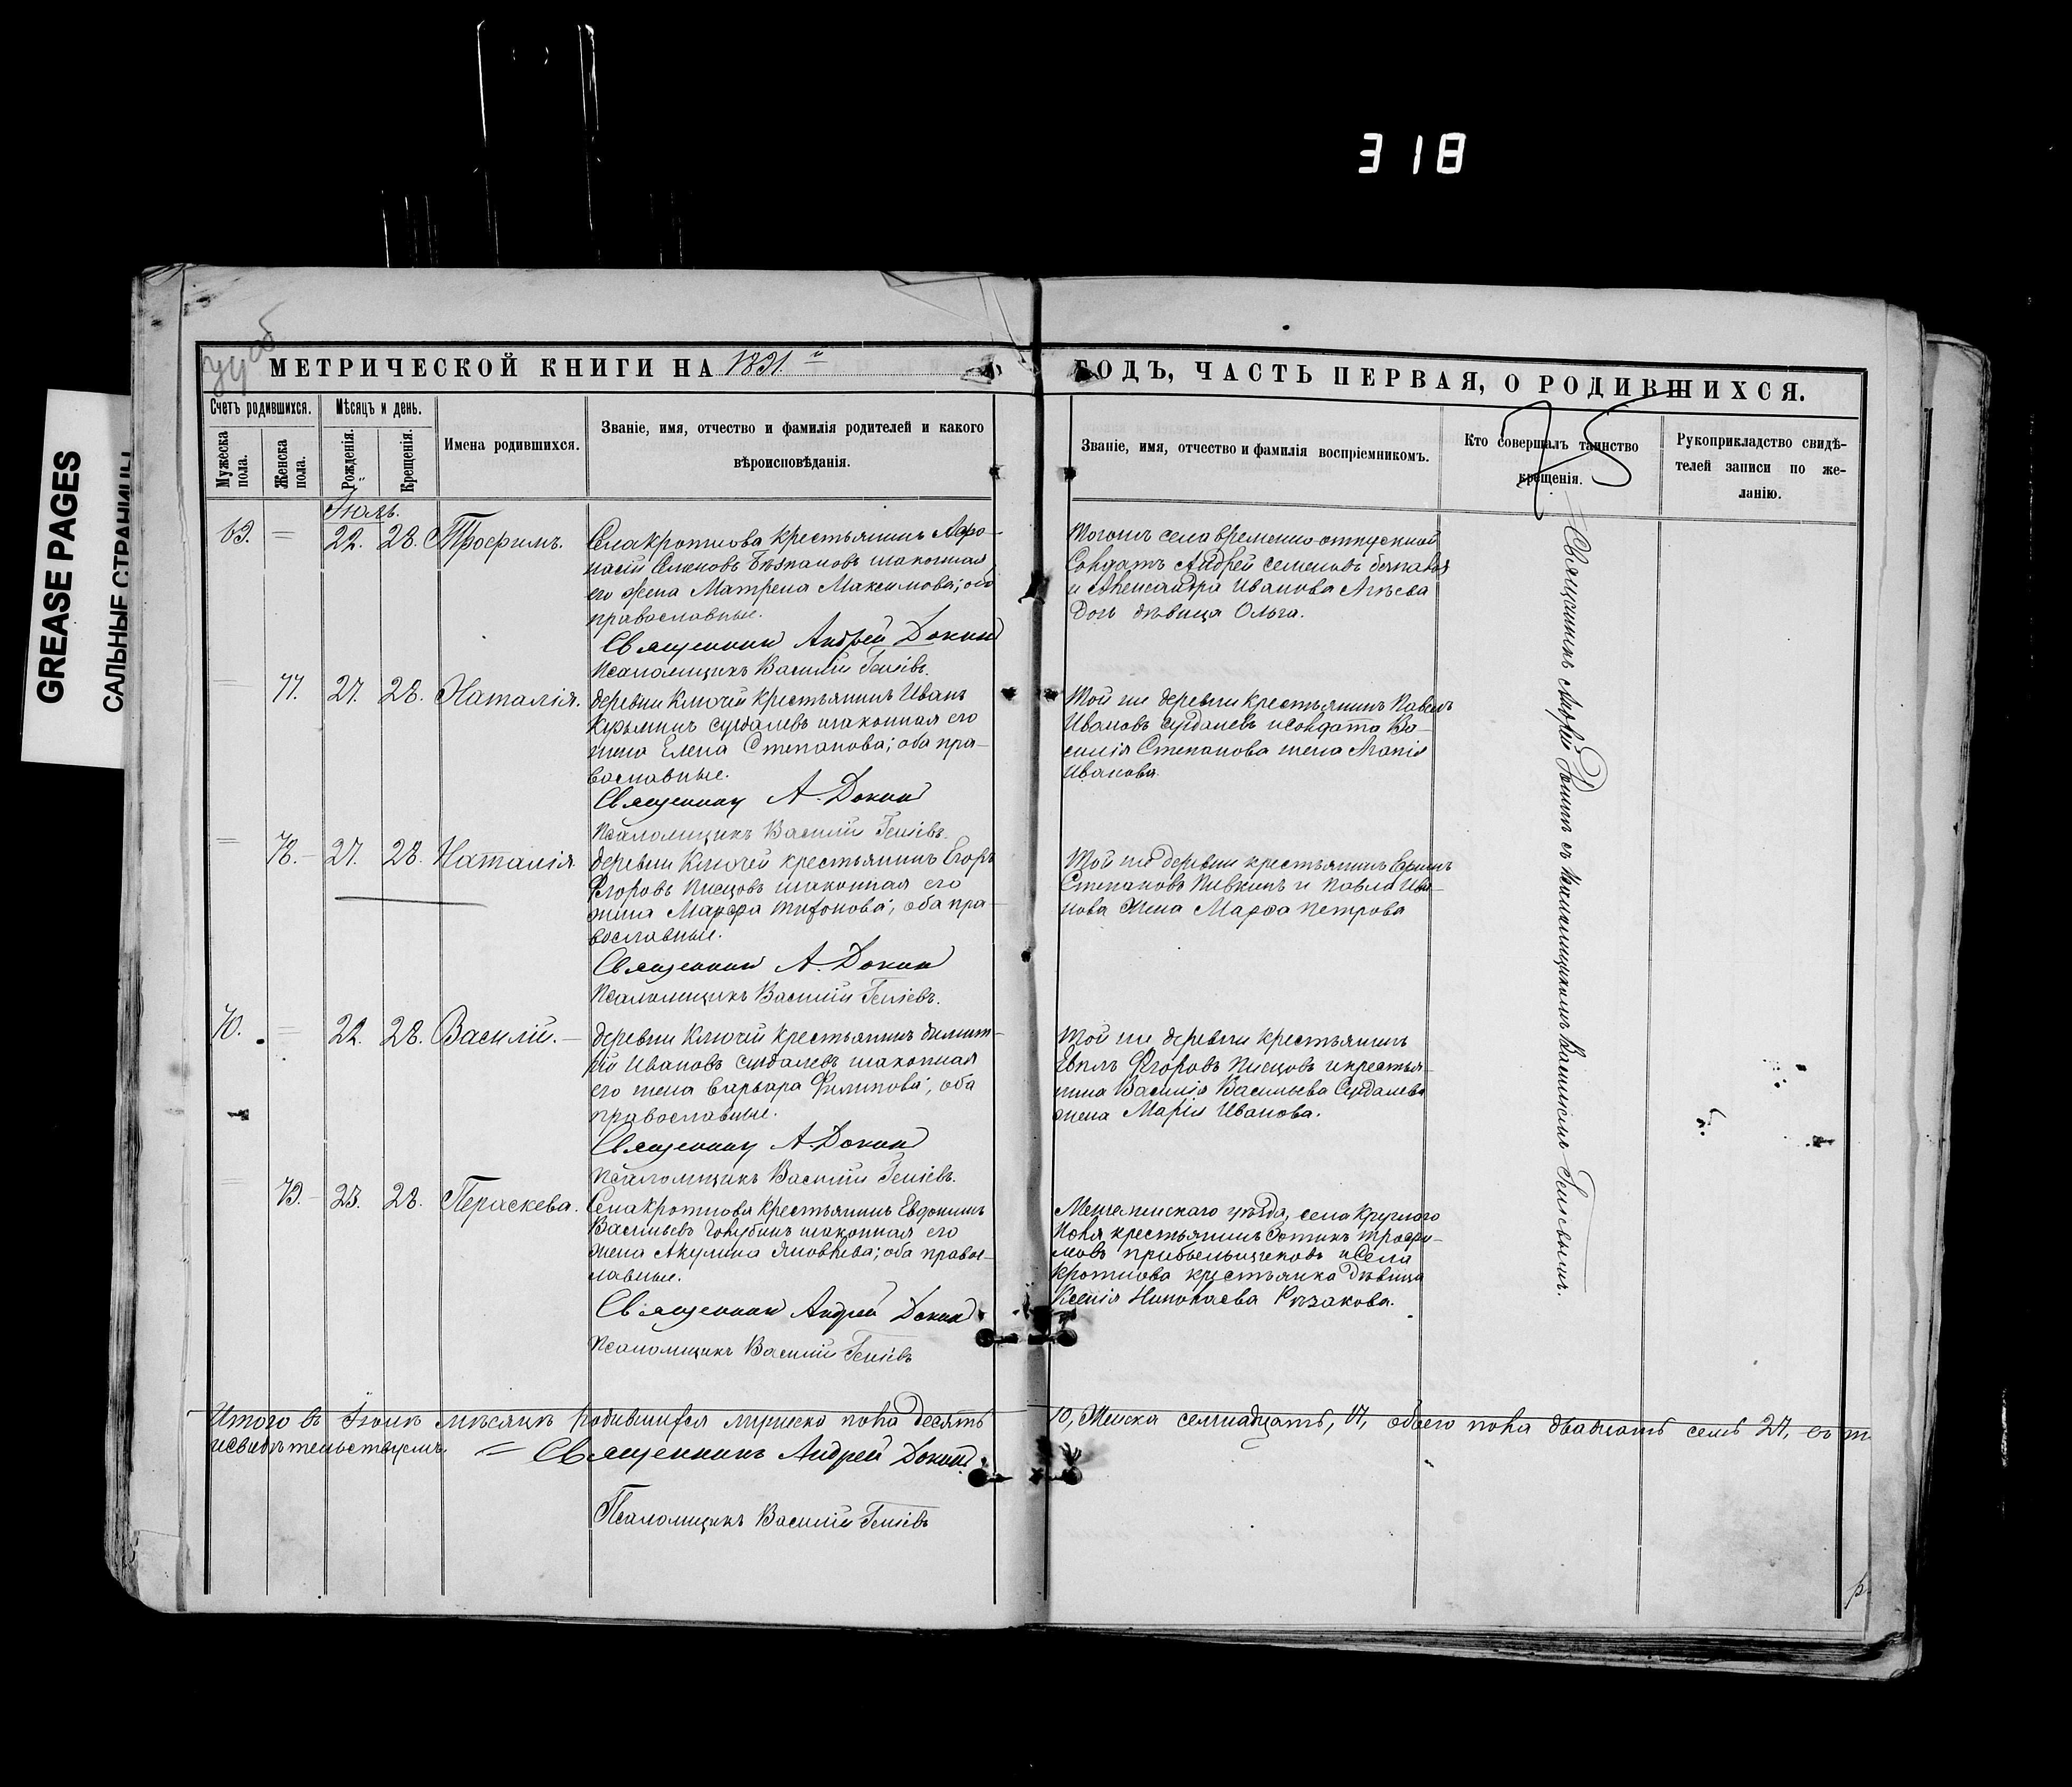 318
GREASE PAGES
САЛЬНЫЕ СТРАНИЦЫ
МЕТРИЧЕСКОЙ КНИГИ НА 1891 й
ГОДЪ, ЧАСТЬ ПЕРВАЯ, О РОДИВШИХСЯ.
Счетъ родившихся.
Мѣсяцъ и день.
Мужеска пола.
Женска пола.
Рожденія.
Крещенія.
Имена родившихся.
Званіе, имя, отчество и фамилія родителей и какого
вѣроисповѣданія.
Званіе, имя, отчество и фамилія воспріемникомъ.
Кто совершалъ таинство
крещенія.
Рукоприкладство свидѣ-
телей записи по же-
ланію.
Іюль.
69. = 22. 28. Трофимъ.
Села Кроткова крестьянинъ Афо-
насій Семеновъ законная
его жена Матрена Максимова; оба
православные.
Священникъ Андрей Докинъ
Псаломщикъ Василий
Тогожъ села временно-отпускной
Солдатъ Андрей Семеновъ
и Александра Иванова
дочь дѣвица Ольга.
= 77. 27. 28. Наталія.
деревни Ключей крестьянинъ Иванъ
Кузьминъ Суздалевъ законная его
жена Елена Степанова; оба пра-
вославные.
Священникъ А. Докинъ
Псаломщикъ Василий
Той же деревни крестьянинъ Павелъ
Ивановъ Суздалевъ и солдата Ва-
силія Степанова жена
Иванова.
= 78. 27. 28. Наталія
деревни Ключей крестьянинъ Егоръ
Егоровъ Писцовъ законная его
жена Марфа Тихонова; оба пра-
вославные.
Священникъ А. Докинъ
Псаломщикъ Василий
Той же деревни крестьянинъ
Степановъ Пивкинъ и Павла Ива-
нова жена Марфа Петрова
70. = 22. 28. Василій.
деревни Ключей крестьянинъ Димит-
рій Ивановъ Суздалевъ законная
его жена Варвара Филипова; оба
православные.
Священникъ А. Докинъ
Псаломщикъ Василий
Той же деревни крестьянинъ
Егоровъ Писцовъ и крестья-
нина Василія Васильева Суздалева
жена Марія Иванова.
= 79. 28. 28. Параскева.
Села Кроткова крестьянинъ Евдокимъ
Васильевъ Голубинъ законная его
жена Акулина Яковлева; оба правос-
лавные.
Священникъ Андрей Докинъ
Псаломщикъ Василий
уѣзда, села Круглого
Поля крестьянинъ Зотикъ Трофи-
мовъ Прибыльщиковъ и Села
Кроткова крестьянка дѣвица
Ксенія Николаева Казакова.
Итого въ Іюлѣ мѣсяцѣ родившихся мужеска пола десять
10, Женска семнадцать, 17, обоего пола двадцать семь 27, въ
и свидѣтельствуемъ. = Священникъ Андрей Докинъ.
Псаломщикъ Василий